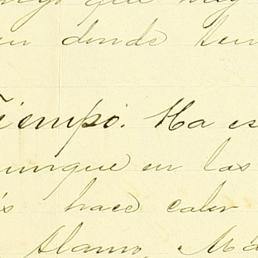 en donde
Tiempo. Ha es
unque en las
s hace calor
Alamo,